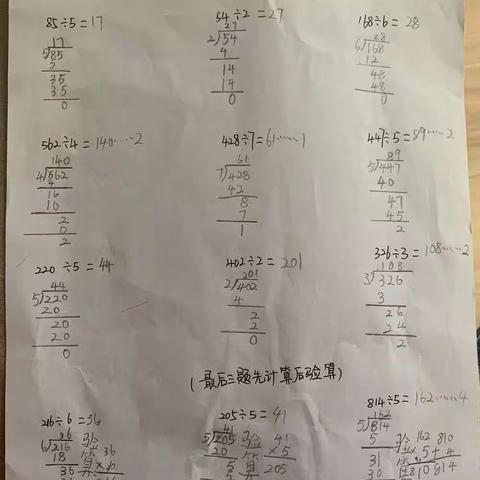 85÷5=17
17
5)85
5
35
35
0
54÷2=27
27
2)54
4
14
14
0
168÷6=28
28
6)168
12
48
48
0
562÷4=140……2
140
4)562
4
16
16
2
0
2
428÷7=61……1
61
7)428
42
8
7
1
447÷5=89……2
89
5)447
40
47
45
2
220÷5=44
44
5)220
20
20
20
0
402÷2=201
201
2)402
4
2
2
0
326÷3=108……2
108
3)326
3
26
24
2
(最后三题先计算后验算)
216÷6=36
36
6)216
18
36
验算
36
205÷5=41
41
5)205
20
5
5
验算
41
×5
205
814÷5=162……4
162
5)814
5
31
30
验算
162
×5
810
810
+4
814